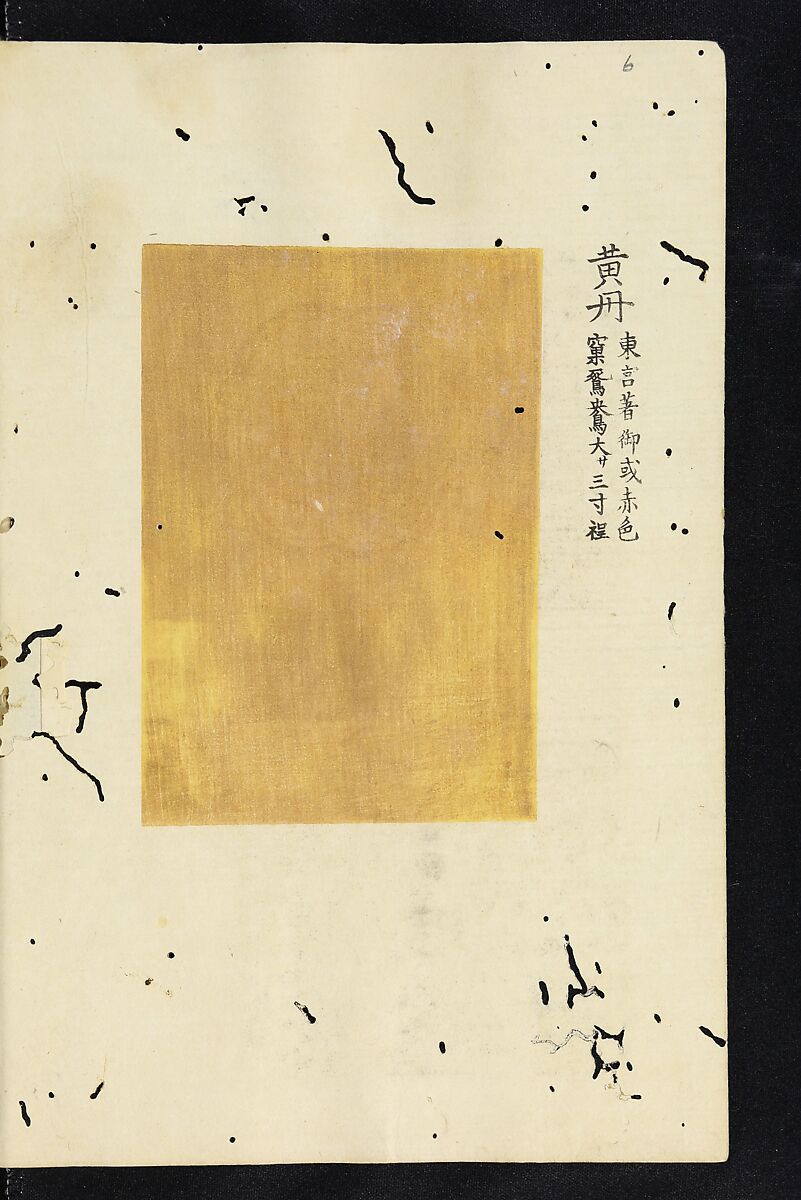 6
黄丹
東宮著御或赤色
窠鴛鴦大サ三寸程